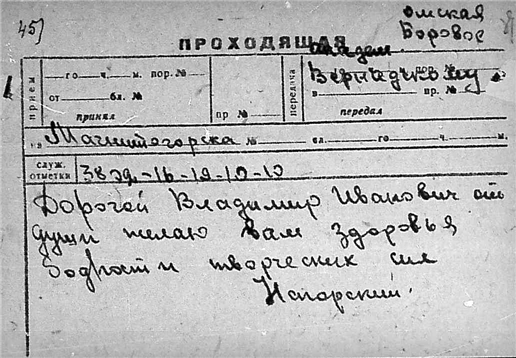 45)
омская
Боровое
ПРОХОДЯЩАЯ
академ.
Вернадскому
ПРИЕМ
го ч. м. пор. №
от бл. №
принял
пр №
передача
пор. №
в пр. №
передал
из Магнитогорска № сл. го ч. м.
служ. отметки
38 эл-16-19-10-10
Дорогой Владимир Иванович от
души желаю вам здоровья
бодрости творческих сил
Нагорский